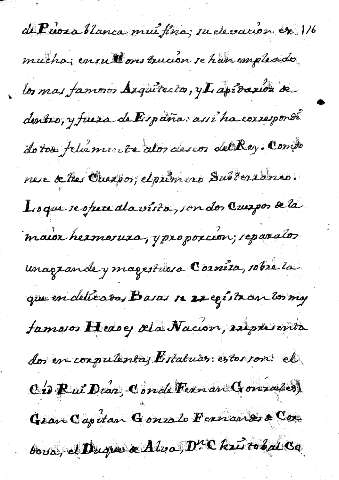 de Piedra blanca mui fina; su elevacion es 116
mucha; en su Construcion se han empleado
los mas famosos Arquitectos, y Lapidarios de
dentro, y fuera de España: assi ha correspondi
do tan felizmente alos deseos del Rey. Compo
nese de tres Cuerpos; el primero Subterraneo.
Lo que se ofrece ala vista, son dos Cuerpos de la
maior hermosura, y proporcion; separalos
una grande y magestuosa Corniza, sobre la
que en delicatas Basas se registran los mas
famosos Heroes de la Nacion, representa
dos en corpulentas Estatuas: estos son: el
Cid Rui Diaz, Conde Fernan Gonzalez,
Gran Capitan Gonzalo Fernandes de Cor
dova, el Duque de Alva, Dn. Christobal Co